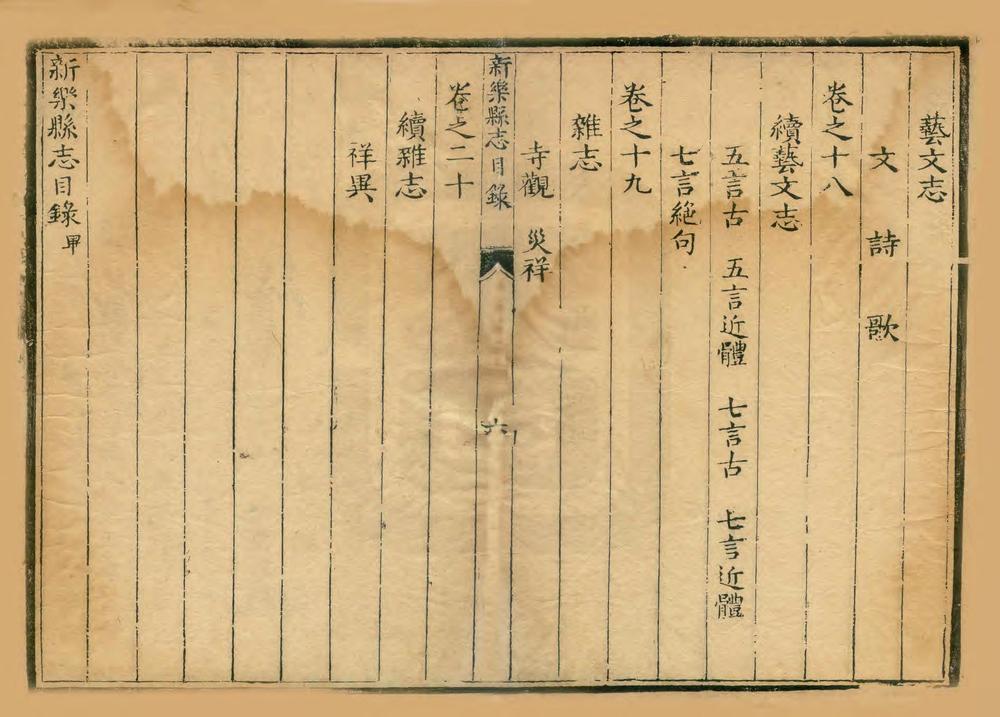 藝文志
文　詩　歌
卷之十八
續藝文志
五言古　五言近體　七言古　七言近體
七言絕句
卷之十九
雜志
寺觀　災祥
新樂縣志目錄　六
卷之二十
續雜志
祥異
新樂縣志目錄